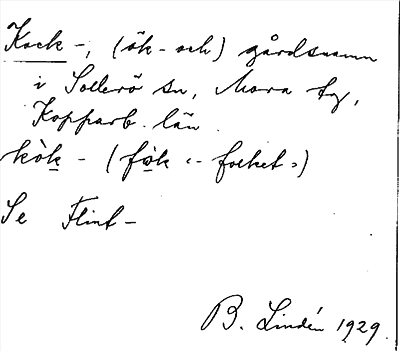 Kock-, (ök- och) gårdsnamn
i Sollerö sn, Mora tg,
Kopparb. län.
kòk - (fòk "- folket")
Se Flint-
B. Lindén 1929.